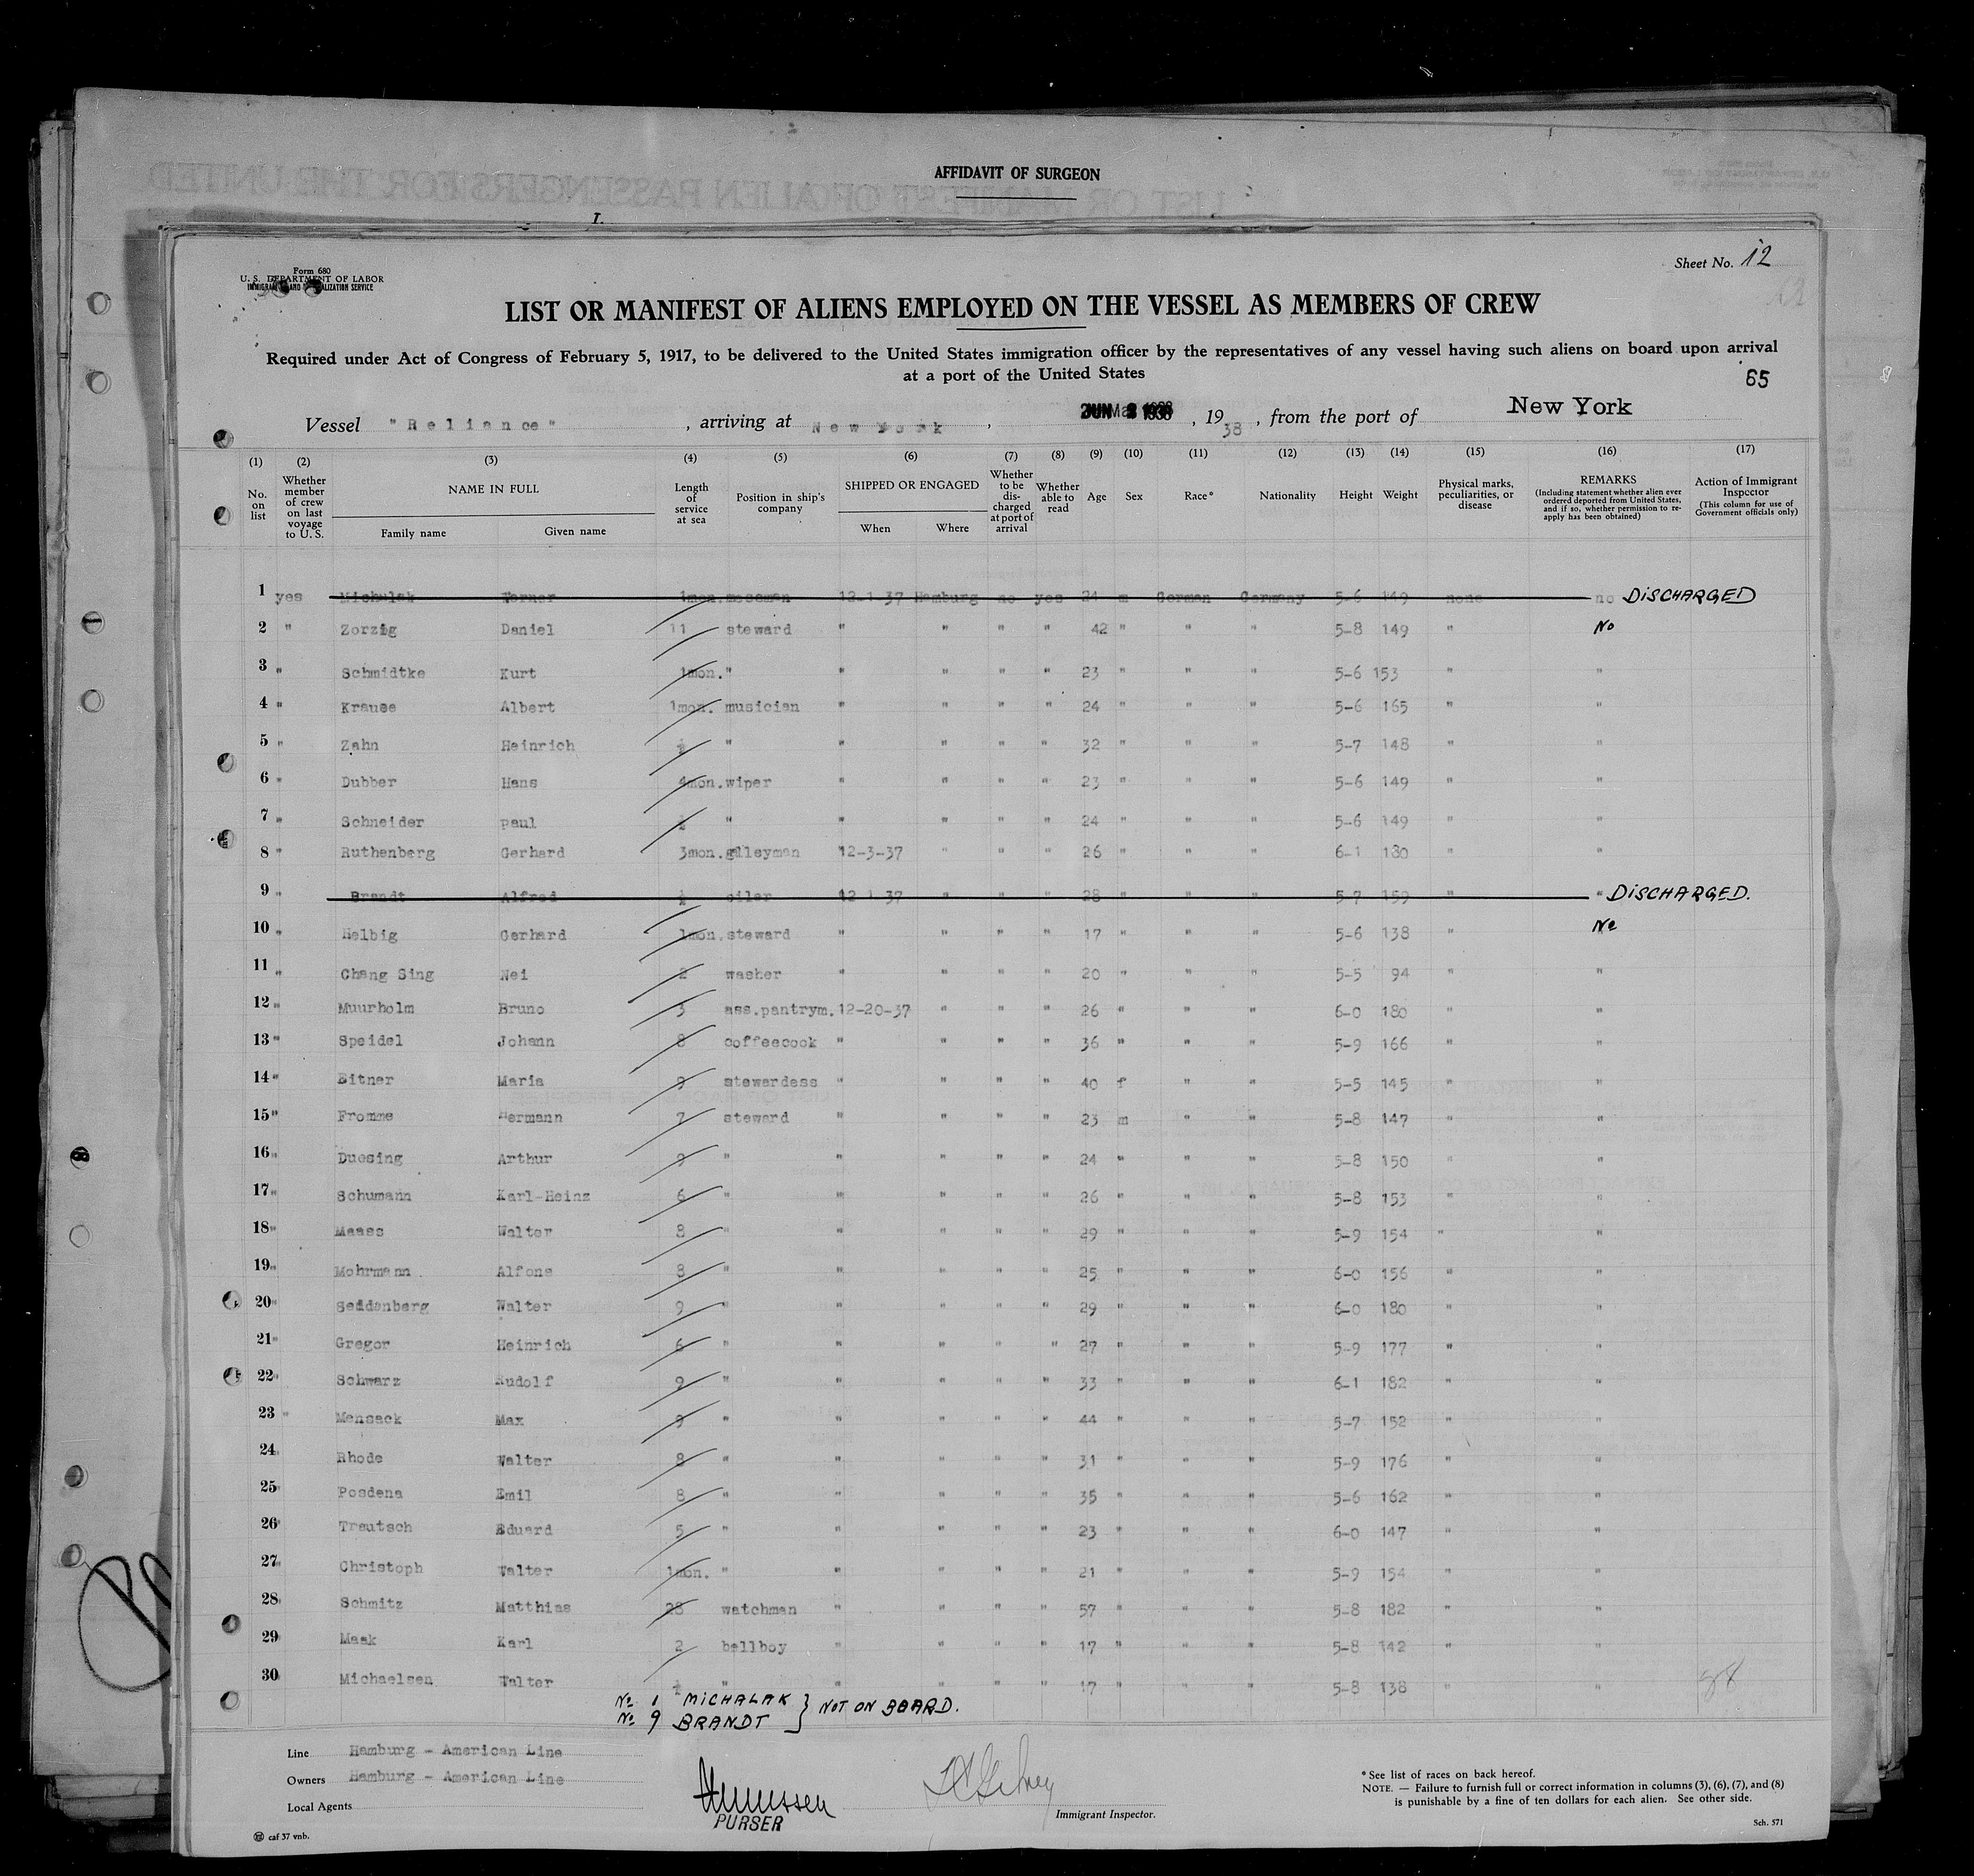 AFFIDAVIT OF SURGEON
I.
Form 680
U. S. DEPARTMENT OF LABOR
IMMIGRATION AND NATURALIZATION SERVICE
Sheet No. 12
LIST OR MANIFEST OF ALIENS EMPLOYED ON THE VESSEL AS MEMBERS OF CREW
Required under Act of Congress of February 5, 1917, to be delivered to the United States immigration officer by the representatives of any vessel having such aliens on board upon arrival
at a port of the United States
65
Vessel "Reliance", arriving at New York, JUN 2 1938, 1938, from the port of New York
(1) (2) (3) (4) (5) (6) (7) (8) (9) (10) (11) (12) (13) (14) (15) (16) (17)
No. on list
Whether member of crew on last voyage to U. S.
NAME IN FULL
Family name Given name
Length of service at sea
Position in ship's company
SHIPPED OR ENGAGED
When Where
Whether to be discharged at port of arrival
Whether able to read
Age
Sex
Race*
Nationality
Height
Weight
Physical marks, peculiarities, or disease
REMARKS
(Including statement whether alien ever ordered deported from United States, and if so, whether permission to re-apply has been obtained)
Action of Immigrant Inspector
(This column for use of Government officials only)
1 yes Michalak Werner 1mon. messman 12-1-37 Hamburg no yes 24 m German Germany 5-6 149 none no DISCHARGED
2 " Zorzig Daniel 11 steward " " " " 42 " " " 5-8 149 " No
3 " Schmidtke Kurt 1mon. " " " " " 23 " " " 5-6 153 " "
4 " Krause Albert 1mon. musician " " " " 24 " " " 5-6 165 " "
5 " Zahn Heinrich ½ " " " " " 32 " " " 5-7 148 " "
6 " Dubber Hans 4mon. wiper " " " " 23 " " " 5-6 149 " "
7 " Schneider paul ½ " " " " " 24 " " " 5-6 149 " "
8 " Ruthenberg Gerhard 3mon. glleyman 12-3-37 " " " 26 " " " 6-1 180 " "
9 " Brandt Alfred ½ oiler 12-1-37 " " " 28 " " " 5-7 159 " " DISCHARGED.
10 " Helbig Gerhard 1mon. steward " " " " 17 " " " 5-6 138 " No
11 " Chang Sing Nei 2 washer " " " " 20 " " " 5-5 94 " "
12 " Muurholm Bruno 3 ass.pantrym. 12-20-37 " " " 26 " " " 6-0 180 " "
13 " Speidel Johann 8 coffeecook " " " " 36 " " " 5-9 166 " "
14 " Eitner Maria 9 stewardess " " " " 40 f " " 5-5 145 " "
15 " Fromme Hermann 7 steward " " " " 23 m " " 5-8 147 " "
16 " Duesing Arthur 9 " " " " " 24 " " " 5-8 150 " "
17 " Schumann Karl-Heinz 6 " " " " " 26 " " " 5-8 153 " "
18 " Maass Walter 8 " " " " " 29 " " " 5-9 154 " "
19 " Mohrmann Alfons 8 " " " " " 25 " " " 6-0 156 " "
20 " Seddenberg Walter 9 " " " " " 29 " " " 6-0 180 " "
21 " Gregor Heinrich 6 " " " " " 27 " " " 5-9 177 " "
22 " Schwarz Rudolf 9 " " " " " 33 " " " 6-1 182 " "
23 " Mensack Max 9 " " " " " 44 " " " 5-7 152 " "
24 " Rhode Walter 8 " " " " " 31 " " " 5-9 176 " "
25 " Posdena Emil 8 " " " " " 35 " " " 5-6 162 " "
26 " Trautsch Eduard 5 " " " " " 23 " " " 6-0 147 " "
27 " Christoph Walter 1mon. " " " " " 21 " " " 5-9 154 " "
28 " Schmitz Matthias 28 watchman " " " " 57 " " " 5-8 182 " "
29 " Maak Karl 2 bellboy " " " " 17 " " " 5-8 142 " "
30 Michaelsen Walter ½ " " " " " 17 " " " 5-8 138 " "
No. 1 MICHALAK } NOT ON BOARD.
No. 9 BRANDT
Line Hamburg - American Line
Owners Hamburg - American Line
Local Agents
PURSER
Immigrant Inspector.
* See list of races on back hereof.
NOTE. — Failure to furnish full or correct information in columns (3), (6), (7), and (8)
is punishable by a fine of ten dollars for each alien. See other side.
caf 37 vnb.
Sch. 571